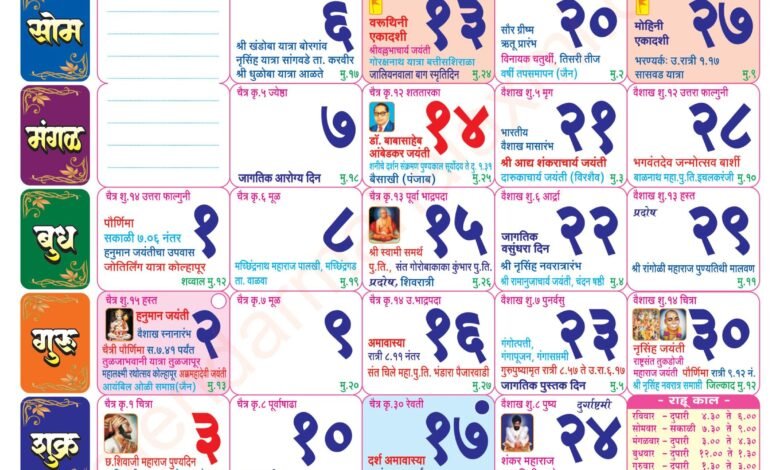 सोम
६
श्री खंडोबा यात्रा बोरगांव
नृसिंह यात्रा सांगवडे ता. करवीर
श्री धुळोबा यात्रा आळते मु.१७
१३
वरूथिनी
एकादशी
श्रीवल्लभाचार्य जयंती
गोरक्षनाथ यात्रा बत्तीसशिराळा
जालियनवाला बाग स्मृतिदिन मु.२४
२०
सौर ग्रीष्म
ऋतू प्रारंभ
विनायक चतुर्थी, तिसरी तीज
वर्षी तपसमापन (जैन) मु.२
२७
मोहिनी
एकादशी
भरण्यर्कः उ.रात्री १.१७
सासवड यात्रा मु.९
मंगळ
चैत्र कृ.५ ज्येष्ठा
७
जागतिक आरोग्य दिन मु.१८
चैत्र कृ.१२ शततारका
१४
डॉ. बाबासाहेब
आंबेडकर जयंती
शनीचे दर्शन संक्रमण पुण्यकाल सूर्योदय ते दु. १.३१
बैसाखी (पंजाब) मु.२५
वैशाख शु.५ मृग
२१
भारतीय
वैशाख मासारंभ
श्री आद्य शंकराचार्य जयंती
दारूकाचार्य जयंती (विरशैव) मु.३
वैशाख शु.१२ उत्तरा फाल्गुनी
२८
भगवंतदेव जन्मोत्सव बार्शी
बाळनाथ महा.पु.ति.इचलकरंजी मु.१०
बुध
चैत्र शु.१४ उत्तरा फाल्गुनी
१
पौर्णिमा
सकाळी ७.०६ नंतर
हनुमान जयंतीचा उपवास
जोतिर्लिंग यात्रा कोल्हापूर
शव्वाल मु.१२
चैत्र कृ.६ मूळ
८
मच्छिंद्रनाथ महाराज पालखी, मच्छिंद्रगड
ता. वाळवा मु.१९
चैत्र कृ.१३ पूर्वा भाद्रपदा
१५
श्री स्वामी समर्थ
पु.ति., संत गोरोबाकाका कुंभार पु.ति.
प्रदोष, शिवरात्री मु.२६
वैशाख शु.६ आर्द्रा
२२
जागतिक
वसुंधरा दिन
श्री नृसिंह नवरात्रारंभ
श्री रामानुजाचार्य जयंती, चंदन षष्ठी मु.४
वैशाख शु.१३ हस्त
प्रदोष
२९
श्री रांगोळी महाराज पुण्यतिथी मालवण
मु.११
गुरू
चैत्र शु.१५ हस्त
२
हनुमान जयंती
वैशाख स्नानारंभ
चैत्री पौर्णिमा स.७.४१ पर्यंत
तुळजाभवानी यात्रा तुळजापूर
महालक्ष्मी रथोत्सव कोल्हापूर अक्कमहादेवी जयंती
आयंबिल ओळी समाप्त(जैन) मु.१३
चैत्र कृ.७ मूळ
९
मु.२०
चैत्र कृ.१४ उ.भाद्रपदा
१६
अमावास्या
रात्री ८.११ नंतर
संत चिले महा.पु.ति. भंडारा पैजारवाडी
मु.२७
वैशाख शु.७ पुनर्वसु
२३
गंगोत्पत्ती,
गंगापूजन, गंगासप्तमी
गुरूपुष्यामृत रात्री ८.५७ ते उ.रा.६.१७
जागतिक पुस्तक दिन मु.५
वैशाख शु.१४ चित्रा
३०
नृसिंह जयंती
राष्ट्रसंत तुकडोजी
महाराज जयंती पौर्णिमा रात्री ९.१२ नं.
श्री नृसिंह नवरात्र समाप्ती जिल्काद मु.१२
शुक्र
चैत्र कृ.१ चित्रा
३
छ.शिवाजी महाराज पुण्यदिन
चैत्र कृ.८ पूर्वाषाढा
१०
चैत्र कृ.३० रेवती
१७
दर्श अमावास्या
वैशाख शु.८ पुष्य
दुर्गाष्टमी
२४
शंकर महाराज
- राहू काल -
रविवार - दुपारी ४.३० ते ६.००
सोमवार - सकाळी ७.३० ते ९.००
मंगळवार - दुपारी ३.०० ते ४.३०
बुधवार - दुपारी १२.०० ते १.३०
गुरुवार - दुपारी १.३० ते ३.००